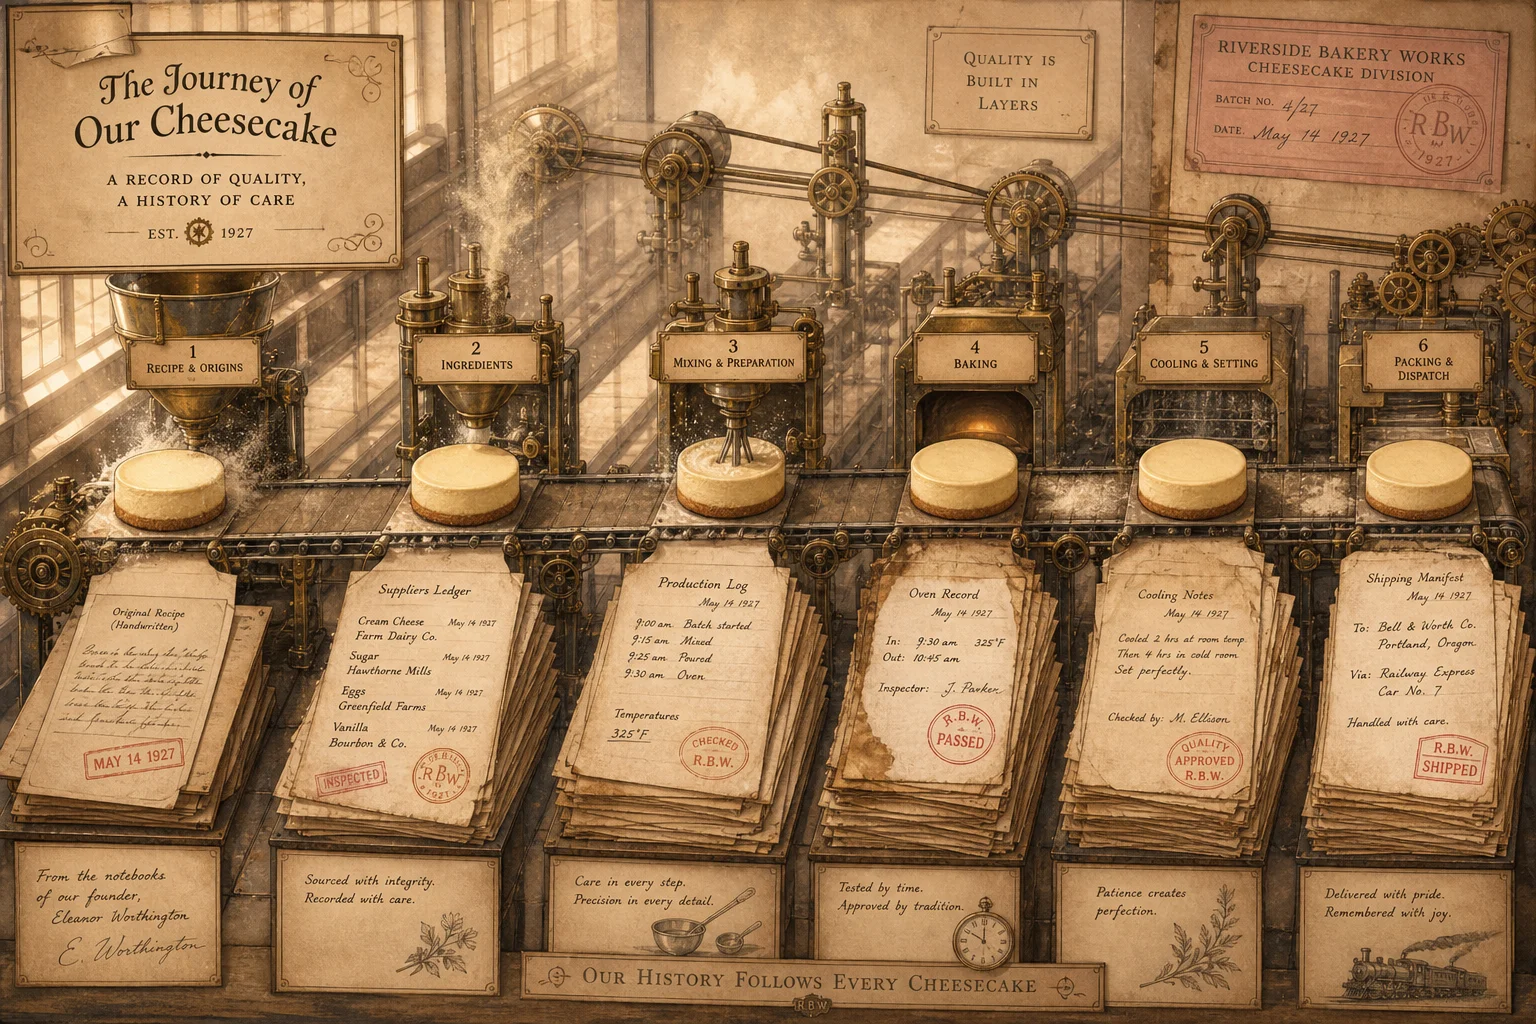 The Journey of
Our Cheesecake
A RECORD OF QUALITY,
A HISTORY OF CARE
EST. 1927
QUALITY IS
BUILT IN
LAYERS
RIVERSIDE BAKERY WORKS
CHEESECAKE DIVISION
BATCH NO. 4/27
DATE. May 14 1927
RBW
1927
1
RECIPE & ORIGINS
2
INGREDIENTS
3
MIXING & PREPARATION
4
BAKING
5
COOLING & SETTING
6
PACKING &
DISPATCH
Original Recipe
(Handwritten)
MAY 14 1927
Suppliers Ledger
Cream Cheese May 14 1927
Farm Dairy Co.
Sugar May 14 1927
Hawthorne Mills
Eggs May 14 1927
Greenfield Farms
Vanilla May 14 1927
Bourbon & Co.
INSPECTED
RBW
1927
Production Log
May 14 1927
9:00 am Batch started
9:15 am Mixed
9:25 am Poured
9:30 am Oven
Temperatures
325°F
CHECKED
R.B.W.
Oven Record
May 14 1927
In: 9:30 am 325°F
Out: 10:45 am
Inspector: J. Parker
R.B.W.
PASSED
Cooling Notes
May 14 1927
Cooled 2 hrs at room temp.
Then 4 hrs in cold room
Set perfectly.
Checked by: M. Ellison
QUALITY
APPROVED
R.B.W.
Shipping Manifest
May 14 1927
To: Bell & Worth Co.
Portland, Oregon
Via: Railway Express
Car No. 7
Handled with care.
R.B.W.
SHIPPED
From the notebooks
of our founder,
Eleanor Worthington
E. Worthington
Sourced with integrity.
Recorded with care.
Care in every step.
Precision in every detail.
Tested by time.
Approved by tradition.
Patience creates
perfection.
Delivered with pride.
Remembered with joy.
OUR HISTORY FOLLOWS EVERY CHEESECAKE
R.B.W.